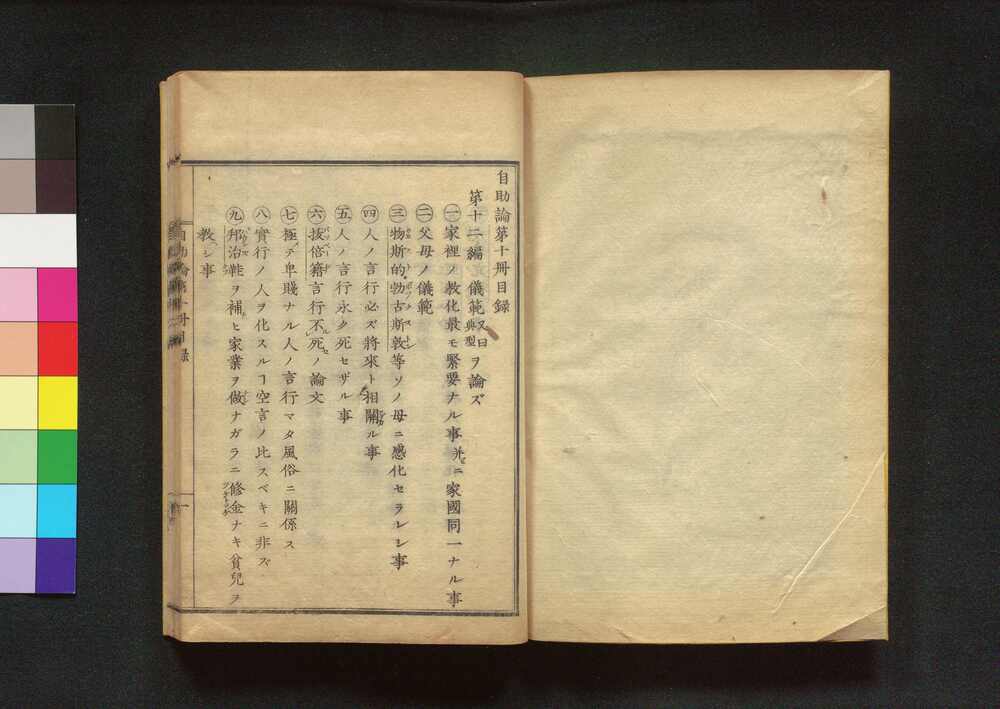 自助論第十冊目録
第十二編 儀範 又曰典型 ヲ論ズ
㊀家裡ノ教化最モ緊要ナル事并ニ家國同一ナル事
㊁父母ノ儀範
㊂物斯的勃古斯敦等ソノ母ニ感化セラレシ事
㊃人ノ言行必ズ將來ト相關ル事
㊄人ノ言行永ク死セザル事
㊅抜倍籍言行不死ノ論文
㊆極テ卑賤ナル人ノ言行マタ風俗ニ關係ス
㊇實行ノ人ヲ化スルヿ空言ノ比スベキニ非ズ
㊈邦治鞋ヲ補ヒ家業ヲ做ナガラニ修金ナキ貧兒ヲ
教シ事
一